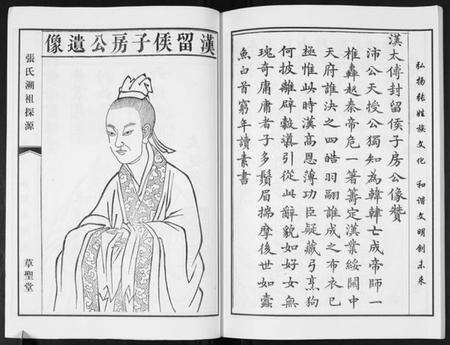 弘扬张姓族文化 和谐文明创未来
漢太傅封留侯子房公像贊
沛公天授公獨知為韓韓亡成帝師一
椎轟起秦帝危一箸籌定漢業綏關中
天府誰決之四皓羽翮誰成之布衣已
極惟此時漢高恩薄功臣疑藏弓烹狗
何披離辟穀導引從此辭貌如好女無
瑰奇庸庸者子多鬚眉揣摩後世如蠧
魚白首窮年讀素書
漢留侯子房公遺像
張氏溯祖探源
草聖堂